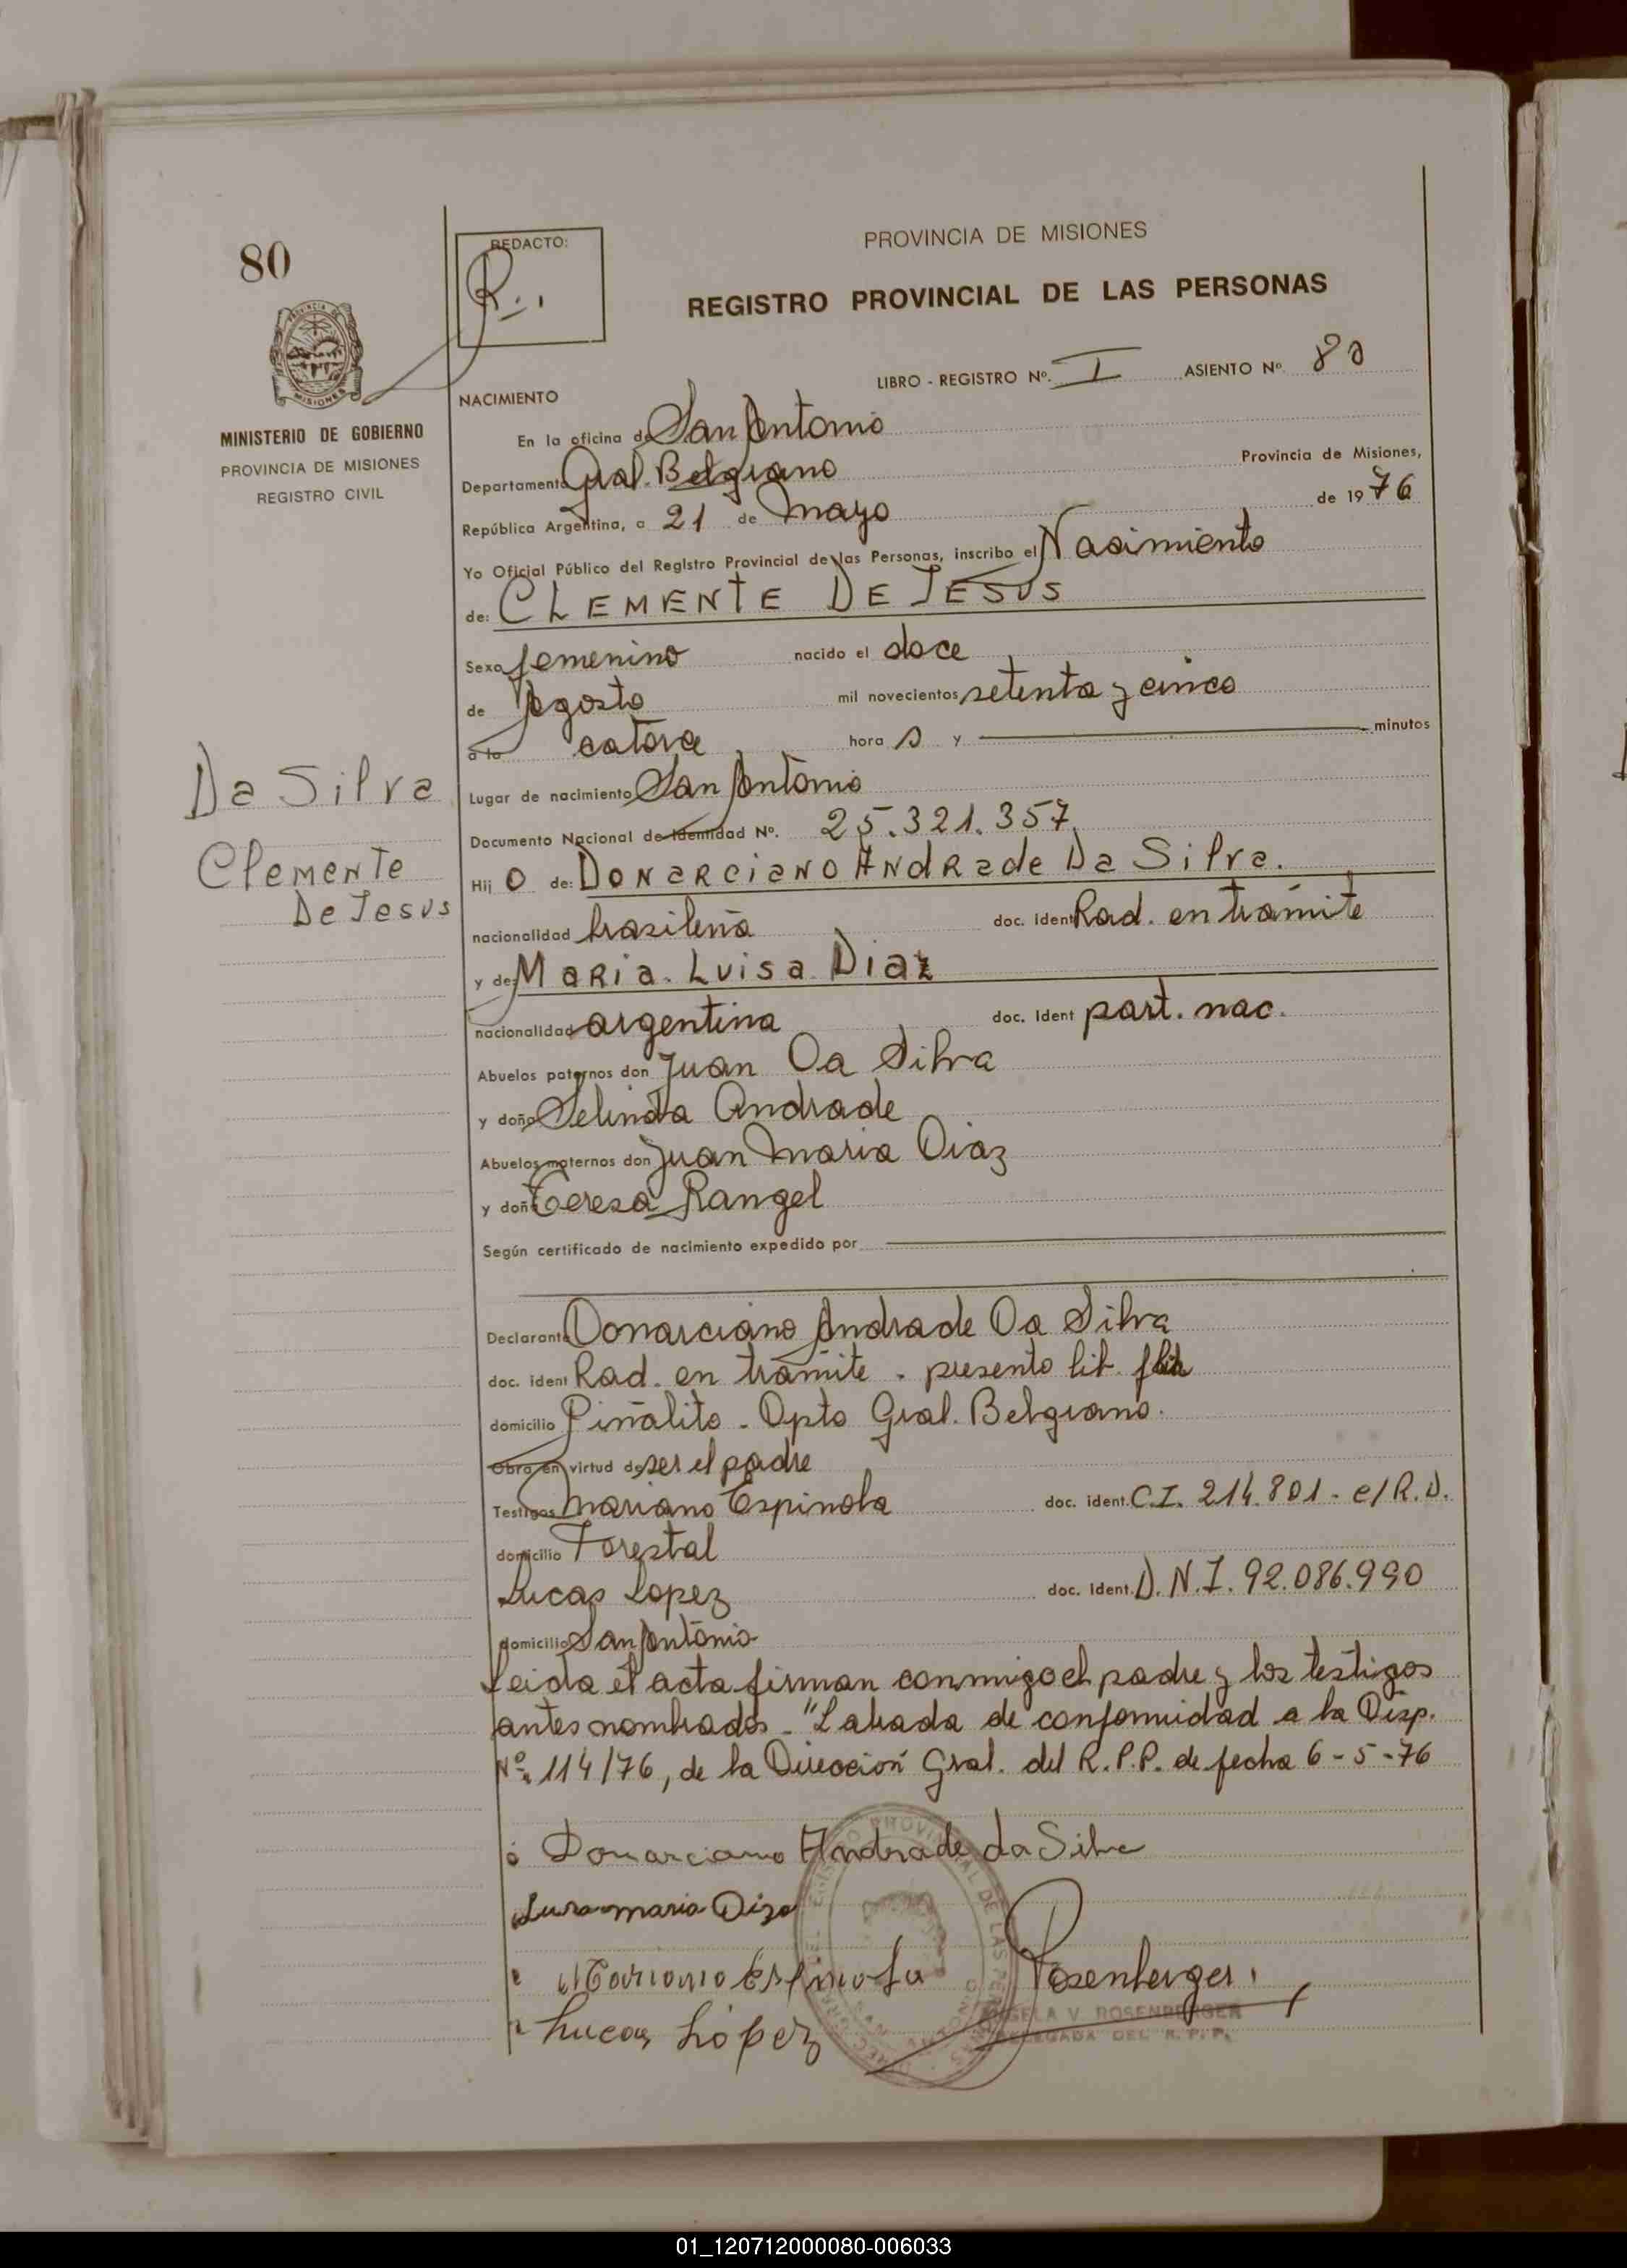 80
REDACTO:
PROVINCIA DE MISIONES
REGISTRO PROVINCIAL DE LAS PERSONAS
LIBRO - REGISTRO Nº. I ASIENTO Nº 80
PROVINCIA DE
MISIONES
MINISTERIO DE GOBIERNO
PROVINCIA DE MISIONES
REGISTRO CIVIL
Da Silva
Clemente
De Jesus
NACIMIENTO
En la oficina de San Antonio
Departamento Gral. Belgrano Provincia de Misiones,
República Argentina, a 21 de mayo de 1976
Yo Oficial Público del Registro Provincial de las Personas, inscribo el Nacimiento
de: CLEMENTE DE JESUS
Sexo femenino nacido el doce
de Agosto mil novecientos setenta y cinco
a la catorce hora s y minutos
Lugar de nacimiento San Antonio
Documento Nacional de Identidad Nº. 25.321.357
Hij o de: Donarciano Andrade Da Silva.
nacionalidad brasileña doc. ident Rad. en trámite
y de: Maria Luisa Diaz
nacionalidad argentina doc. ident part. nac.
Abuelos paternos don Juan Da Silva
y doña Selinda Andrade
Abuelos maternos don Juan Maria Diaz
y doña Teresa Rangel
Según certificado de nacimiento expedido por
Declarante Donarciano Andrade Da Silva
doc. ident Rad. en trámite . presento lib.
domicilio Piñalito - Dpto Gral. Belgrano.
Obra en virtud de ser el padre
Testigos Mariano Espinola doc. ident. C.I. 214.801 - e/R.D.
domicilio Forestal
Lucas Lopez doc. ident. D.N.I. 92.086.990
domicilio San Antonio
Leida el acta firman conmigo el padre y los testigos
antes nombrados - "Labrada de conformidad a la Disp.
Nº 114/76, de la Dirección Gral. del R.P.P. de fecha 6-5-76
Donarciano Andrade da Silva
Luisa maria Diza
Mariano Espinola
Rosenberger
Lucas López
ANGELA V. ROSENBERGER
DELEGADA DEL R.P.P.
01_120712000080-006033